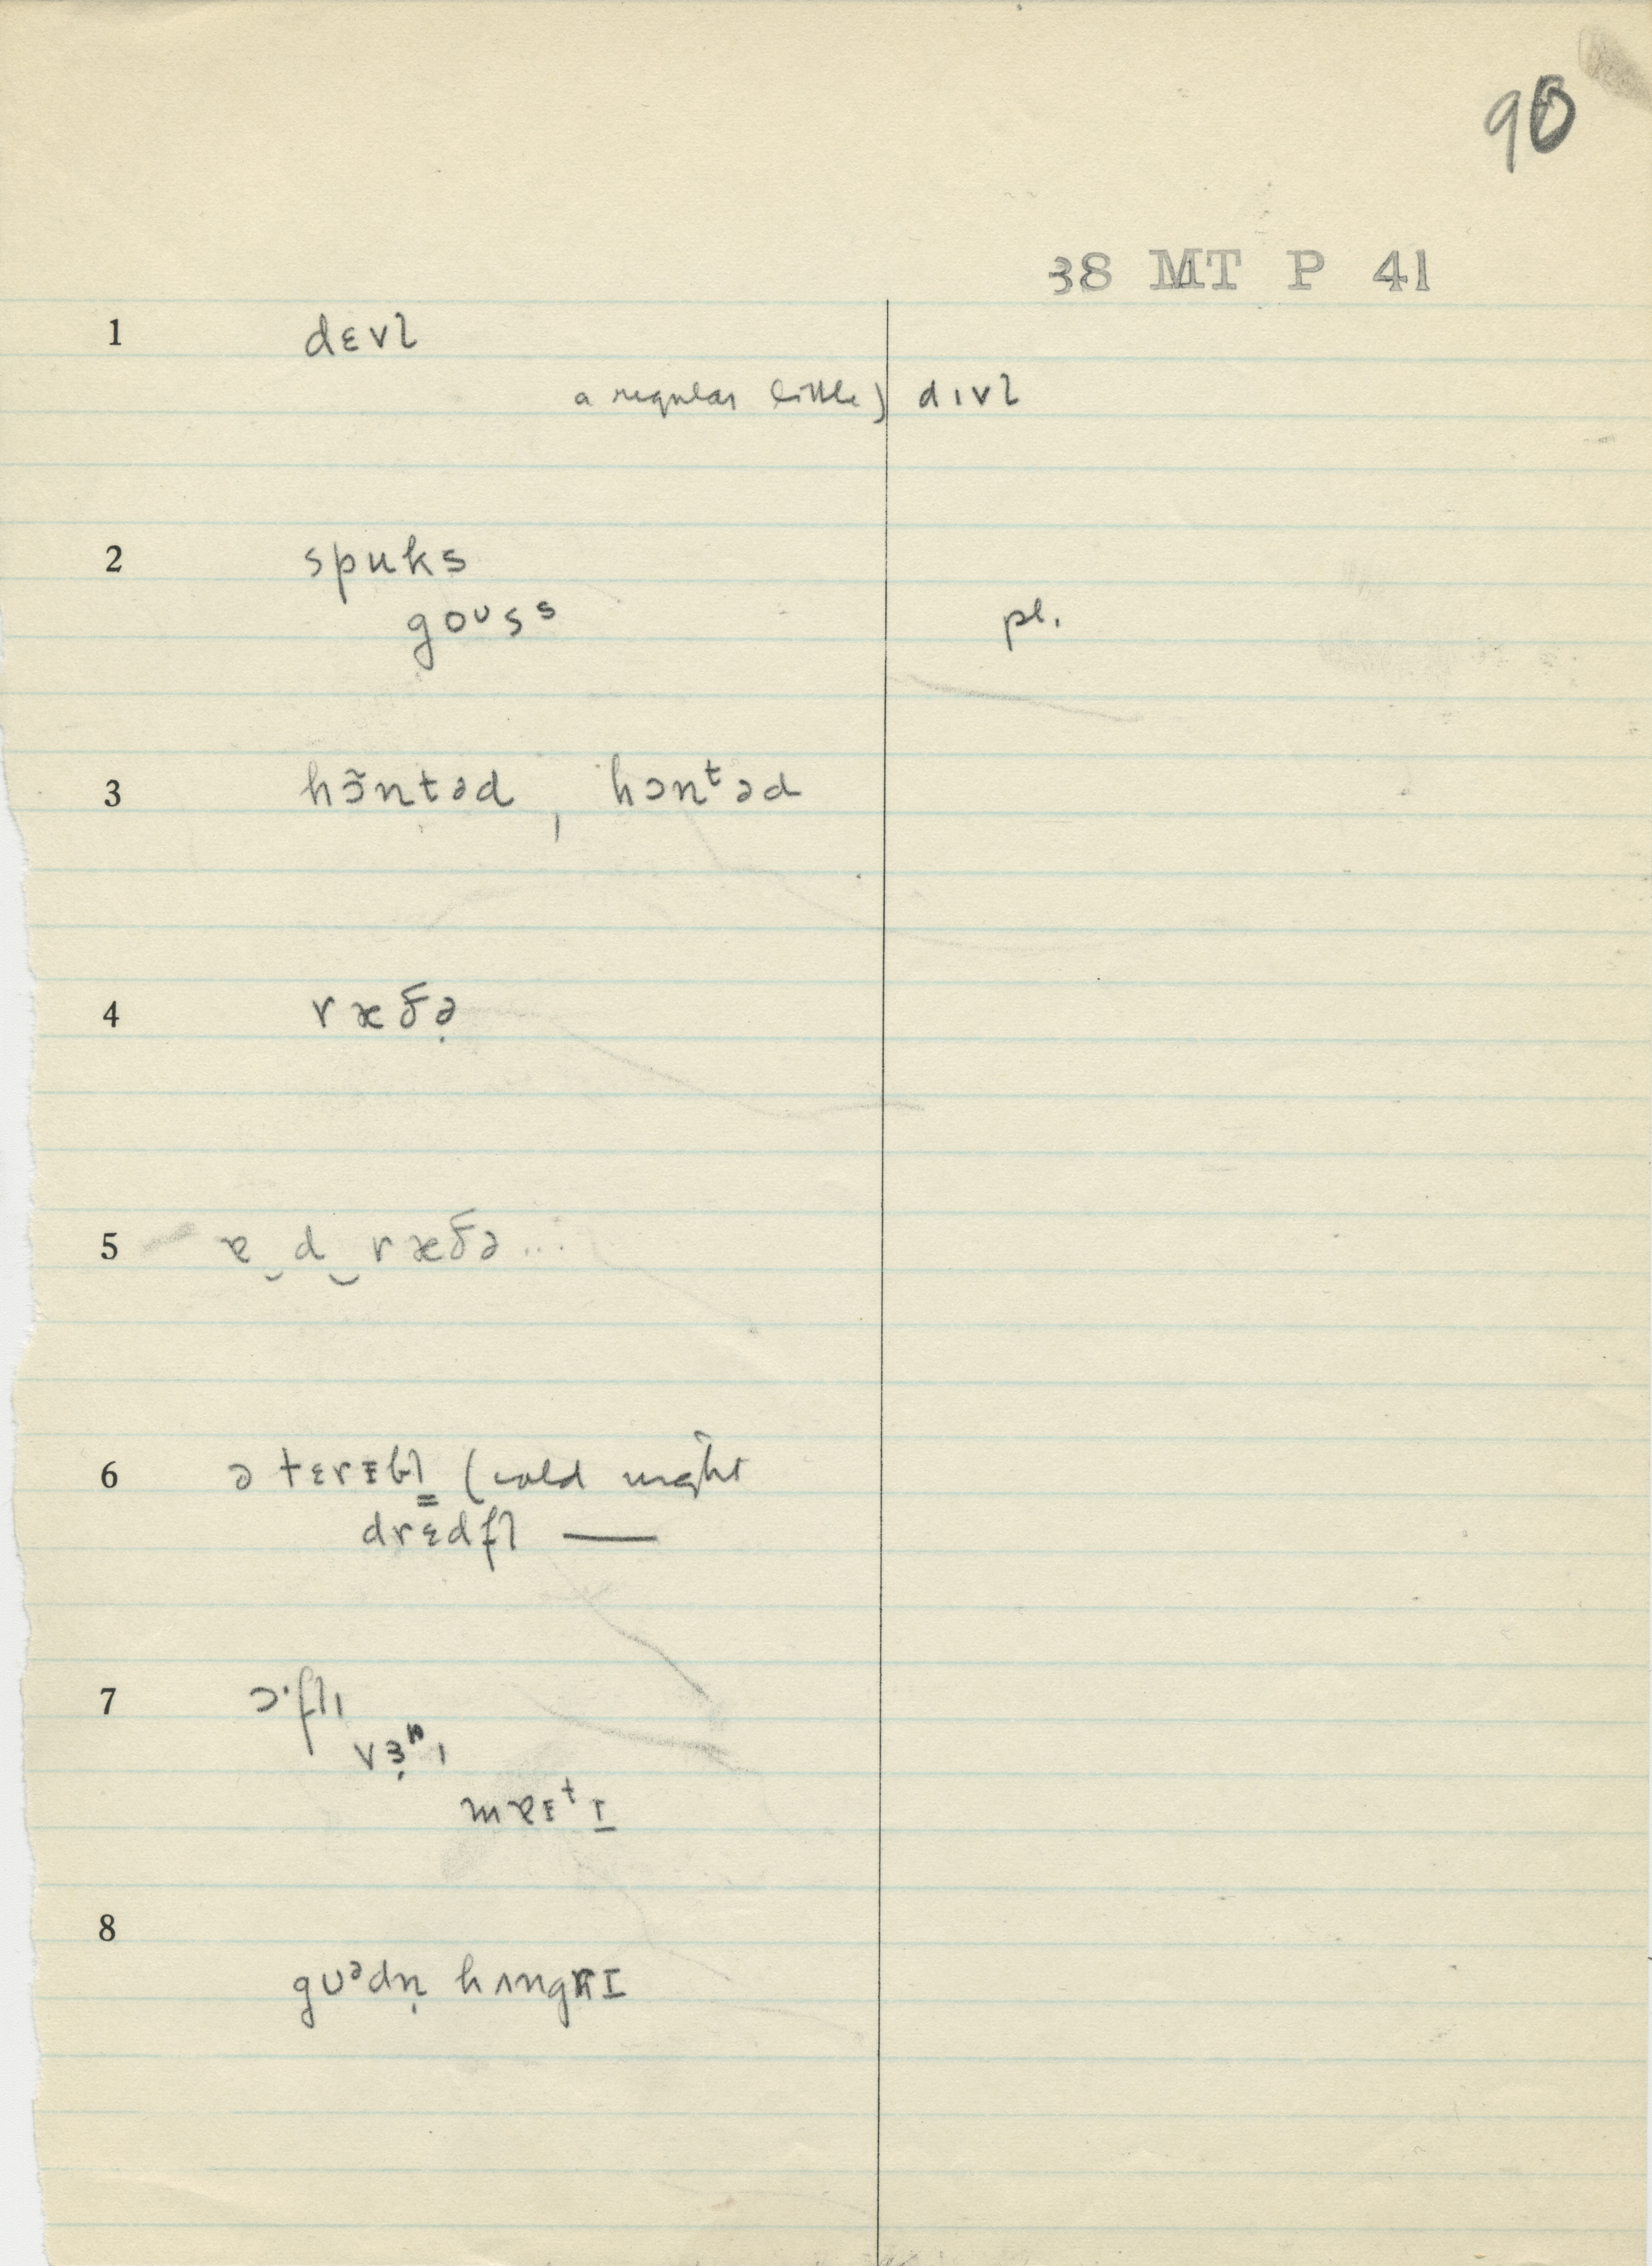 90
38 MT P 41
1 dɛvl̩
a regular little) dɪvl̩
2 spuks
goᴜsˢ pl.
3 hɔ̃ntəd, hɔnᵗəd
4 ræðə̣
5 ɐ‿d‿ræðə...
6 ə tɛrɪbl̳ (cold night
drɛdfl ——
7 ɔ·flɪ
vɜ̣ʳɪ
mɐɪᵗɪ̠
8 gᴜᵊdṇ hʌngrɪ